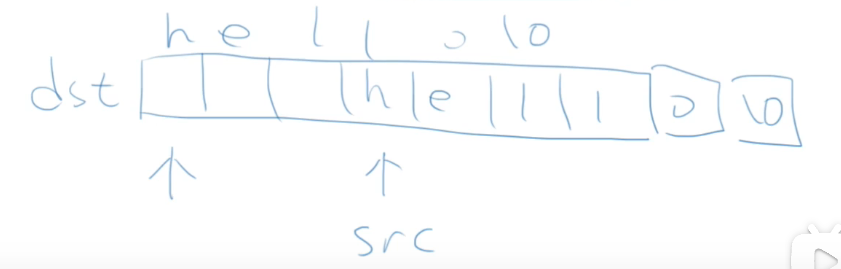 h e l l o \0
dst h e l l o \0
src